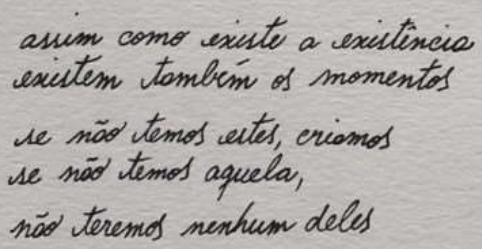 assim como existe a existência
existem também os momentos
se não temos estes, criamos
se não temos aquela,
não teremos nenhum deles